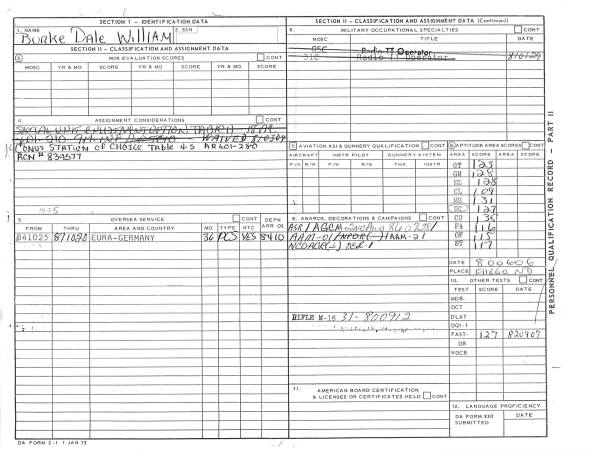 SECTION I - IDENTIFICATION DATA
1. NAME
2. SSN
Burke Dale William
SECTION II - CLASSIFICATION AND ASSIGNMENT DATA
3. MOS EVALUATION SCORES CONT
MOSC YR & MO SCORE YR & MO SCORE YR & MO SCORE
4. ASSIGNMENT CONSIDERATIONS CONT
WAIVED 810304
CONUS STATION OF CHOICE Table 4-5 AR601-280
RCN # 839577
5. OVERSEA SERVICE CONT DEPN
FROM THRU AREA AND COUNTRY MO TYPE NTC ARR OS
841025 871020 EURA-GERMANY 36 PCS YES 8410
SECTION II - CLASSIFICATION AND ASSIGNMENT DATA (Continued)
6. MILITARY OCCUPATIONAL SPECIALTIES CONT
MOSC TITLE DATE
05C Radio TT Operator
31C Radio TT Operator 810129
7. AVIATION ASI & GUNNERY QUALIFICATION CONT
AIRCRAFT INSTR PILOT GUNNERY SYSTEM
F/W R/W F/W R/W TNG INSTR
8. APTITUDE AREA SCORES CONT
AREA SCORE AREA SCORE
GT 125
GM 125
EL 128
CL 109
MM 131
SC 127
CO 135
FA 116
OF 115
ST 117
DATE 800606
PLACE FARGO ND
9. AWARDS, DECORATIONS & CAMPAIGNS CONT
ASR / AGCM 2nd Awd 860728/
AAM-01/ NPDR(-)/AAM-2/
NCOPDR(-) OSR-1
RIFLE M-16 31-800912
10. OTHER TESTS CONT
TEST SCORE DATE
MDB-
OCT
DLAT
OQI-1
FAST- 127 820907
OB
WOCB
11. AMERICAN BOARD CERTIFICATION
& LICENSES OR CERTIFICATES HELD CONT
12. LANGUAGE PROFICIENCY
DA FORM 330 SUBMITTED DATE
PERSONNEL QUALIFICATION RECORD - PART II
DA FORM 2-1 1 JAN 73